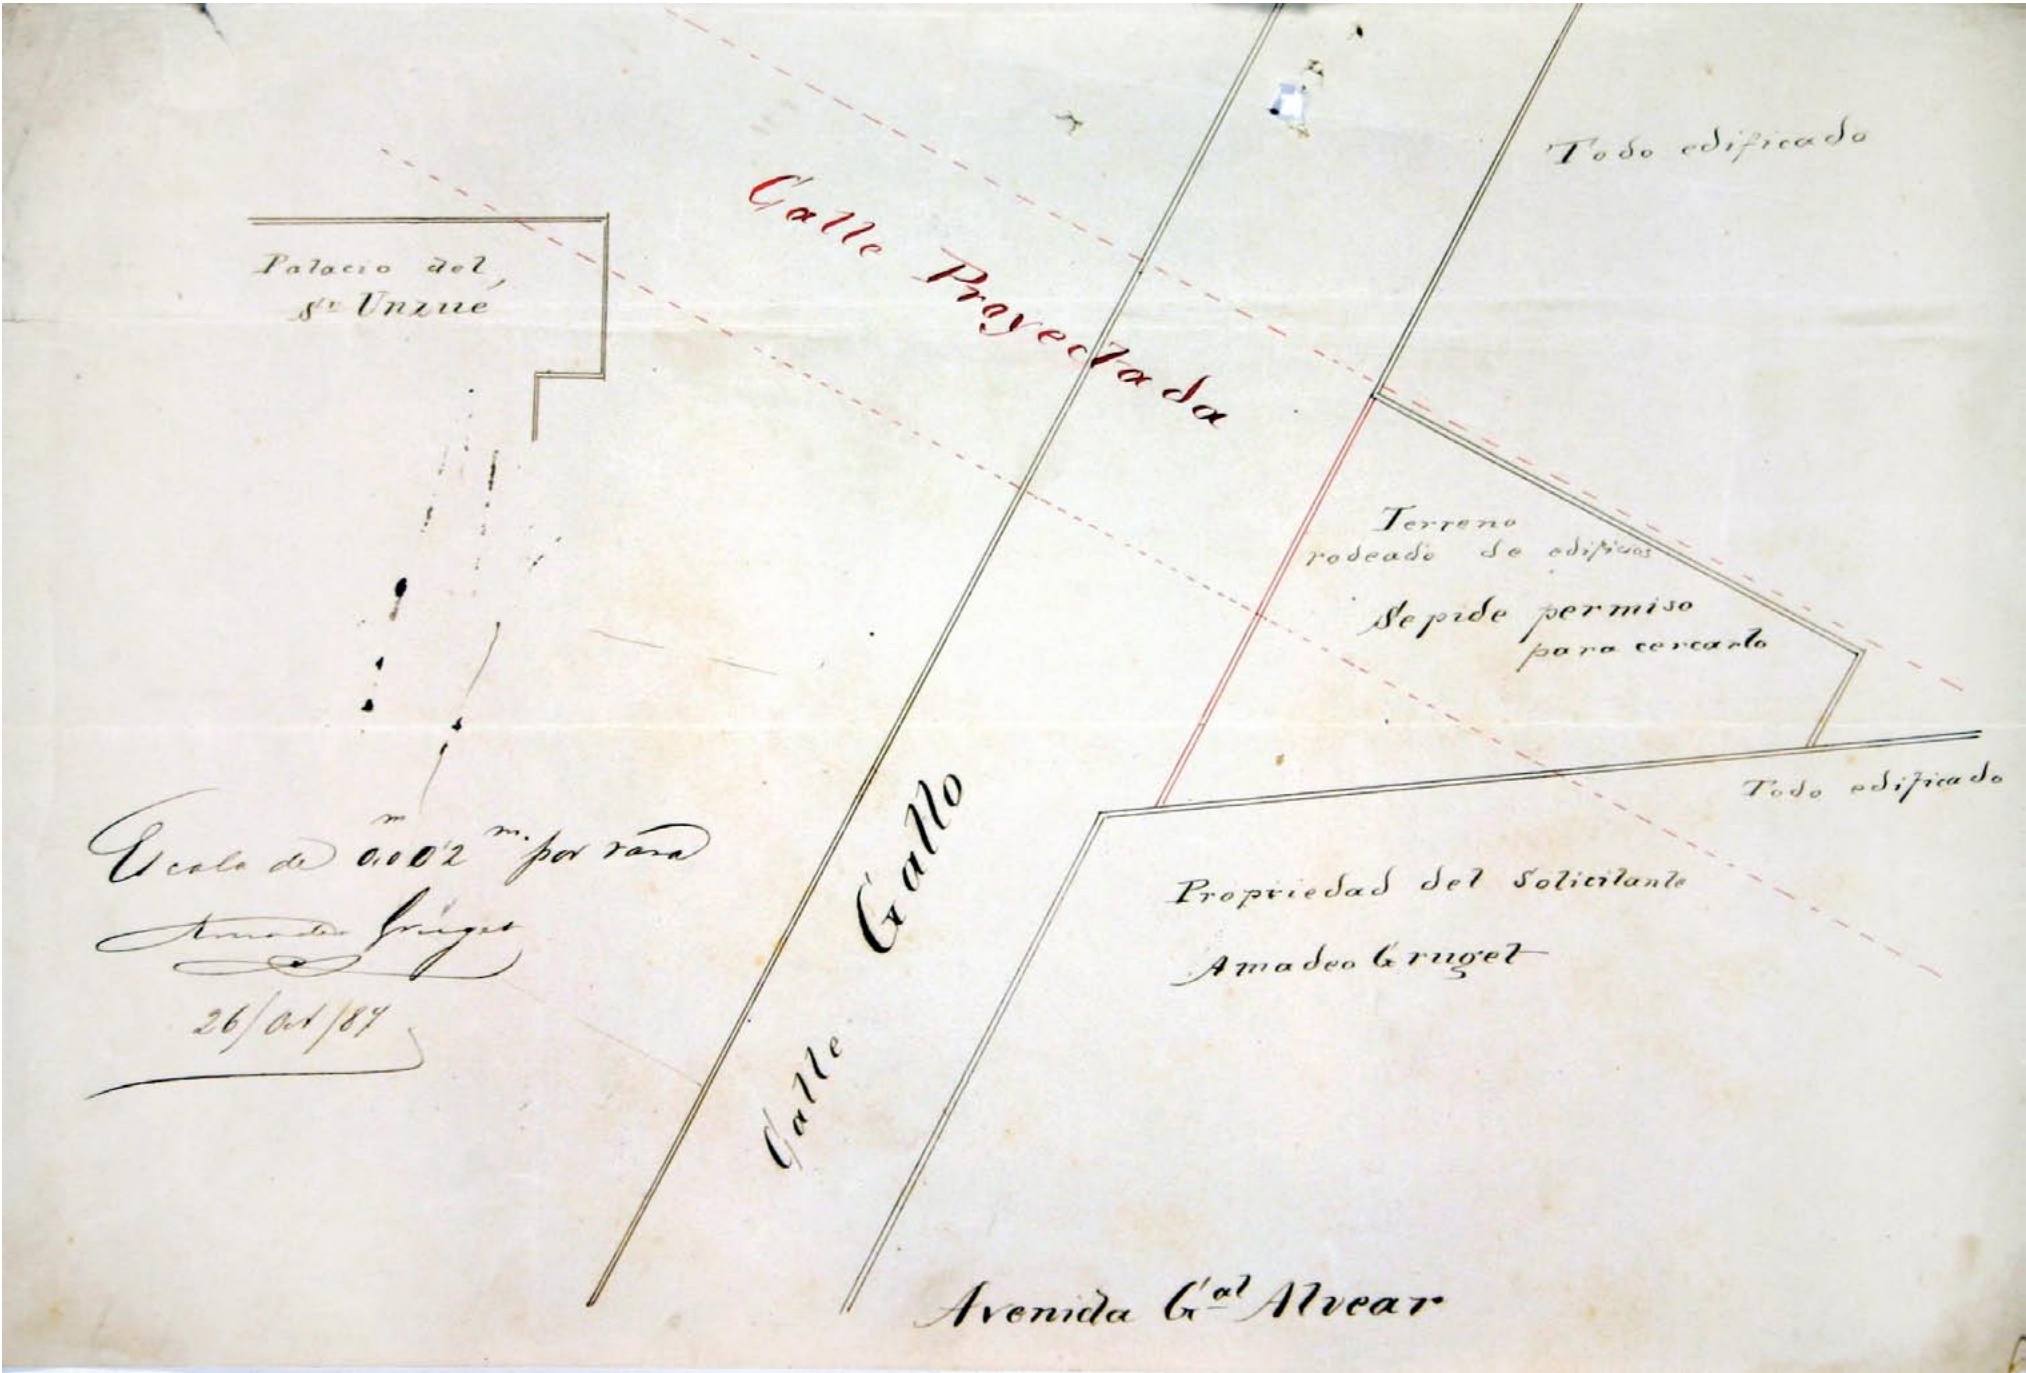 Todo edificado
Calle Proyectada
Palacio del
Sr Unzué
Terreno
rodeado de edificios
Se pide permiso
para cercarlo
Todo edificado
Calle Gallo
Escala de 0.002 m. por vara
m
Amadeo Gruget
26/Oct/87
Propriedad del Solicitante
Amadeo Gruget
Avenida Gal Alvear